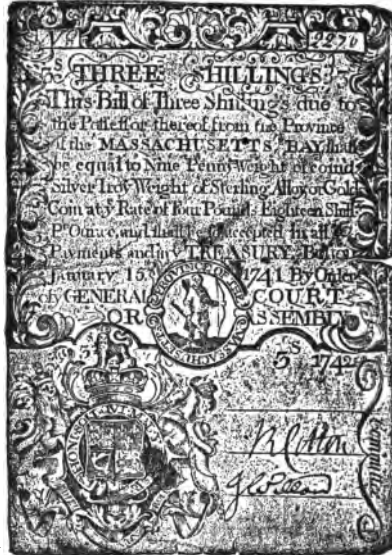 2270
3S THREE SHILLINGS 3S
This Bill of Three Shillings due to
the Possessor thereof from the Province
of the MASSACHUSETTS BAY shall
be equal to Nine Penny Weight of coind
Silver Troy Weight of Sterling Alloy or Gold
Coin at yͤ Rate of Four Pounds Eighteen Shill
Pr Ounce, and shall be so accepted in all
Payments and in yͤ TREASURY. Boston
January 15 1741 By Order
of GENERAL COURT
OR ASSEMBLY
PROVINCE OF THE MASSACHUSETTS
3S 1742
HONI SOIT QUI MAL Y PENSE
R Cotton
Committee